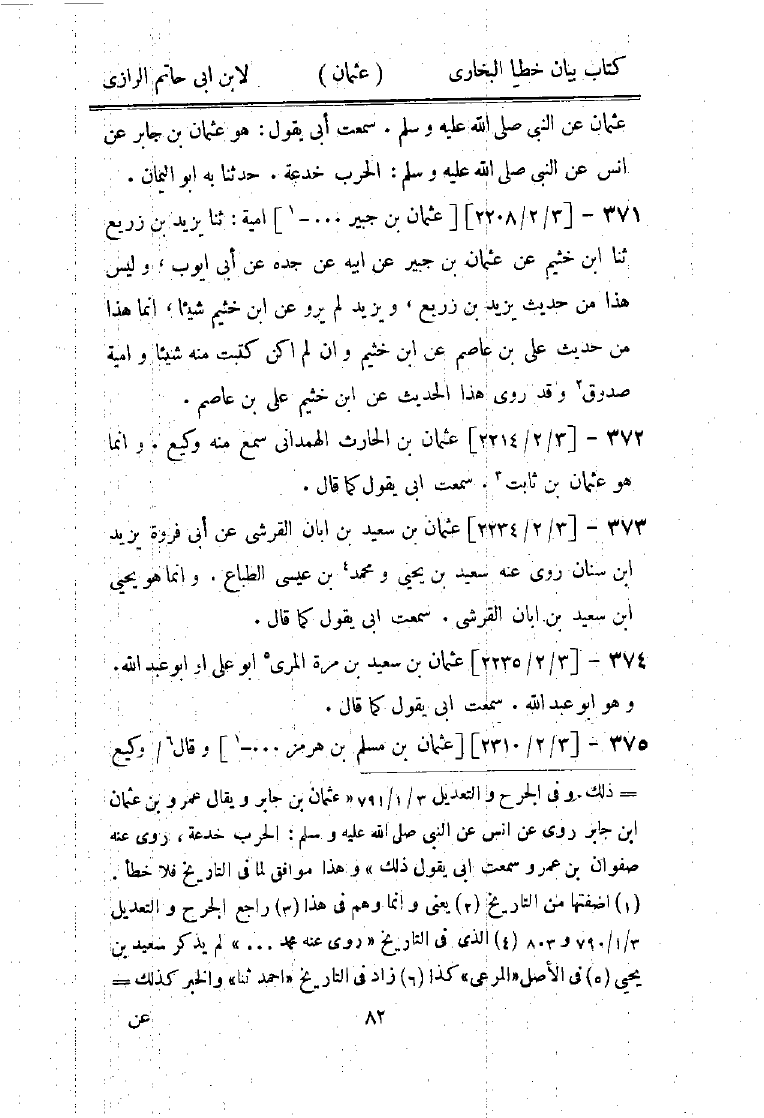 كتاب بيان خطا البخارى ( عثمان ) لابن ابى حاتم الرازى
عثمان عن النبى صلى الله عليه و سلم . سمعت أبى يقول : هو عثمان بن جابر عن
انس عن النبى صلى الله عليه و سلم : الحرب خدعة . حدثنا به ابو اليمان .
٣٧١ – [٢٢٠٨/٢/٣] [ عثمان بن جبير ...–١ ] امية : ثنا يزيد بن زريع
ثنا ابن خثيم عن عثمان بن جبير عن ابيه عن جده عن أبى ايوب ، و ليس
هذا من حديث يزيد بن زريع ، و يزيد لم يرو عن ابن خثيم شيئا ، انما هذا
من حديث على بن عاصم عن ابن خثيم و ان لم اكن كتبت منه شيئا و امية
صدوق٢ و قد روى هذا الحديث عن ابن خثيم على بن عاصم .
٣٧٢ – [٢٢١٤/٢/٣] عثمان بن الحارث الهمدانى سمع منه وكيع . و انما
هو عثمان بن ثابت٣ . سمعت ابى يقول كما قال .
٣٧٣ – [٢٢٣٤/٢/٣] عثمان بن سعيد بن ابان القرشى عن أبى فروة يزيد
ابن سنان روى عنه سعيد بن يحيى و محمد٤ بن عيسى الطباع . و انما هو يحيى
ابن سعيد بن ابان القرشى . سمعت ابى يقول كما قال .
٣٧٤ – [٢٢٣٥/٢/٣] عثمان بن سعيد بن مرة المرى٥ ابو على او ابو عبد الله.
و هو ابو عبد الله . سمعت ابى يقول كما قال .
٣٧٥ – [٢٣١٠/٢/٣] [عثمان بن مسلم بن هرمز ...–١ ] و قال٦/ وكيع
= ذلك . و فى الجرح و التعديل ٧٩١/١/٣ « عثمان بن جابر و يقال عمرو بن عثمان
ابن جابر روى عن انس عن النبى صلى الله عليه و سلم : الحرب خدعة ، روى عنه
صفوان بن عمرو سمعت ابى يقول ذلك » و هذا موافق لما فى التاريخ فلا خطأ .
(١) اضفتها من التاريخ (٢) يعنى و انما وهم فى هذا (٣) راجع الجرح و التعديل
٧٩٠/١/٣ و ٨٠٣ (٤) الذى فى التاريخ « روى عنه محمد ... » لم يذكر سعيد بن
يحيى (٥) فى الأصل «المرعى» كذا (٦) زاد فى التاريخ «احمد ثنا» والخبر كذلك =
٨٢ عن